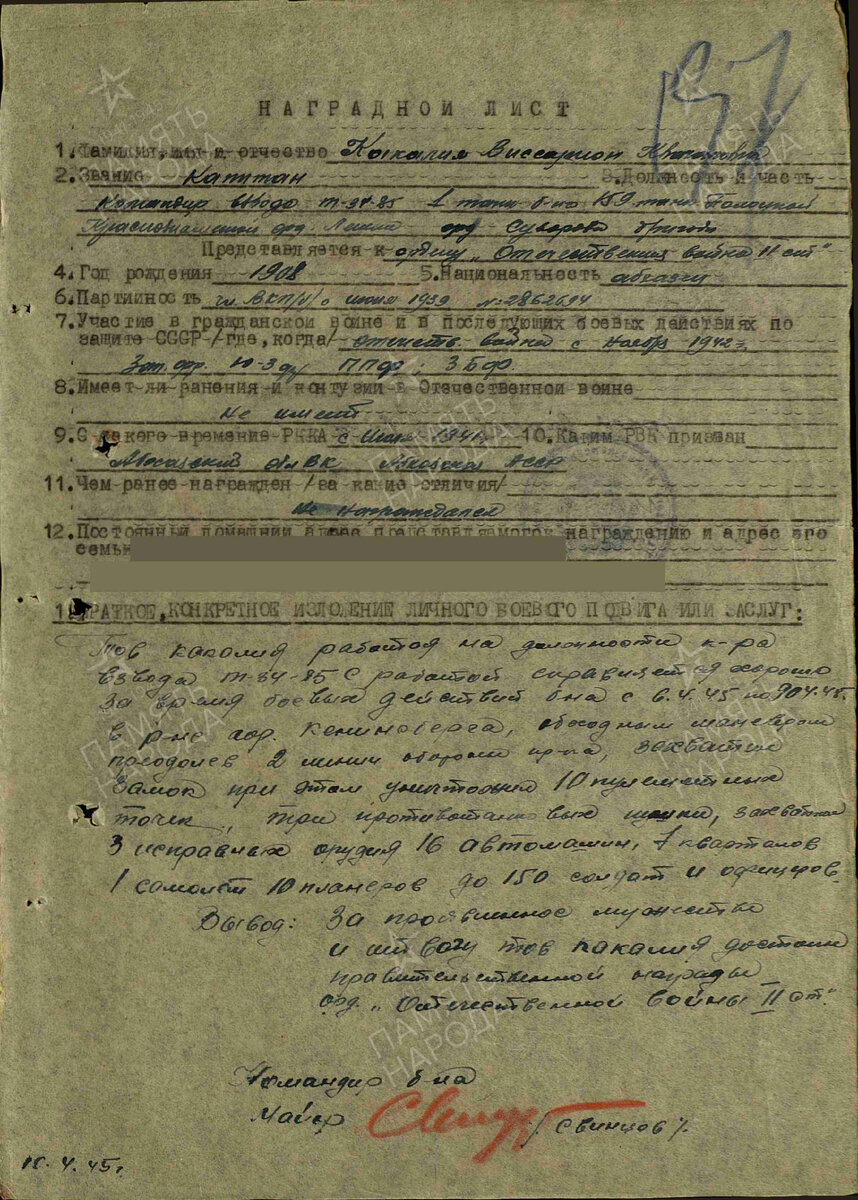 НАГРАДНОЙ ЛИСТ
1. Фамилия, имя и отчество Какалия Виссарион
2. Звание Капитан 3. Должность и часть
командир взвода Т-34-85 1 танк. б-на 159 танк. Полоцкой
Краснознаменной орд. Ленина орд Суворова бригады
Представляется к ордену „Отечественная война II ст"
4. Год рождения 1908 5. Национальность абхазец
6. Партийность чл. ВКП/б/ с июня 1939 № 2862694
7. Участие в гражданской войне и в последующих боевых действиях по
защите СССР /где, когда/ отечеств войны с ноября 1942 г.
Зап. фр. Ю-З фр ППФ; 3 БФ.
8. Имеет ли ранения и контузии в Отечественной войне
Не имеет
9. С какого времени в РККА с Июля 1941 г. 10. Каким РВК призван
обл ВК АССР
11. Чем ранее награжден /за какие отличия/
не награждался
12. Постоянный домашний адрес представляемого к награждению и адрес его
семьи
1. КРАТКОЕ, КОНКРЕТНОЕ ИЗЛОЖЕНИЕ ЛИЧНОГО БОЕВОГО ПОДВИГА ИЛИ ЗАСЛУГ:
Тов какалия работая на должности к-ра
взвода Т-34-85 С работой справляется хорошо
За время боевых действий б-на с 6.4.45 по 9.04.45г.
в р-не гор. Кенинсберга, обходным маневром
преодолев 2 линии обороны пр-ка, захватил
Замок при этом уничтожил 10 пулеметных
точек, три противотанковых пушки, захватил
3 исправных орудия 16 автомашин, 7 кварталов
1 самолет 10 планеров до 150 солдат и офицеров.
Вывод: За проявленное мужество
и отвагу тов Какалия достоин
правительственной награды
орд. „Отечественной войны II ст."
Командир б-на
Майор /Свинцов/.
10.4.45г.
ПАМЯТЬ НАРОДА